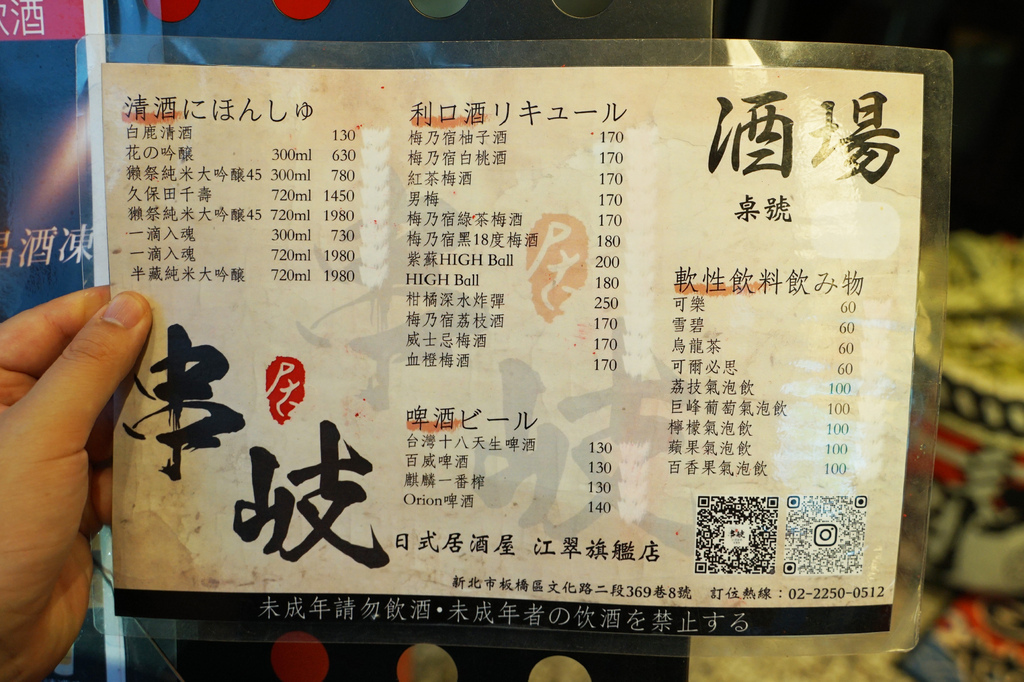 飲酒
晶酒凍
清酒にほんしゅ
白鹿清酒 130
花の吟釀 300ml 630
獺祭純米大吟釀45 300ml 780
久保田千壽 720ml 1450
獺祭純米大吟釀45 720ml 1980
一滴入魂 300ml 730
一滴入魂 720ml 1980
半藏純米大吟釀 720ml 1980
利口酒リキュール
梅乃宿柚子酒 170
梅乃宿白桃酒 170
紅茶梅酒 170
男梅 170
梅乃宿綠茶梅酒 170
梅乃宿黑18度梅酒 180
紫蘇HIGH Ball 200
HIGH Ball 180
柑橘深水炸彈 250
梅乃宿荔枝酒 170
威士忌梅酒 170
血橙梅酒 170
啤酒ビール
台灣十八天生啤酒 130
百威啤酒 130
麒麟一番榨 130
Orion啤酒 140
酒場
桌號
軟性飲料飲み物
可樂 60
雪碧 60
烏龍茶 60
可爾必思 60
荔技氣泡飲 100
巨峰葡萄氣泡飲 100
檸檬氣泡飲 100
蘋果氣泡飲 100
百香果氣泡飲 100
串岐
居
日式居酒屋 江翠旗艦店
新北市板橋區文化路二段369巷8號 訂位熱線：02-2250-0512
未成年請勿飲酒·未成年者の飲酒を禁止する